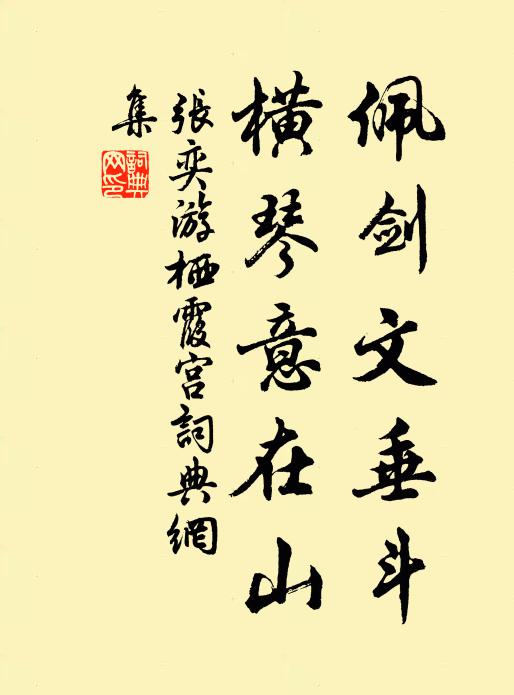 佩剑文垂斗
横琴意在山
張奕游栖霞宫詞典網
集
詞典网印